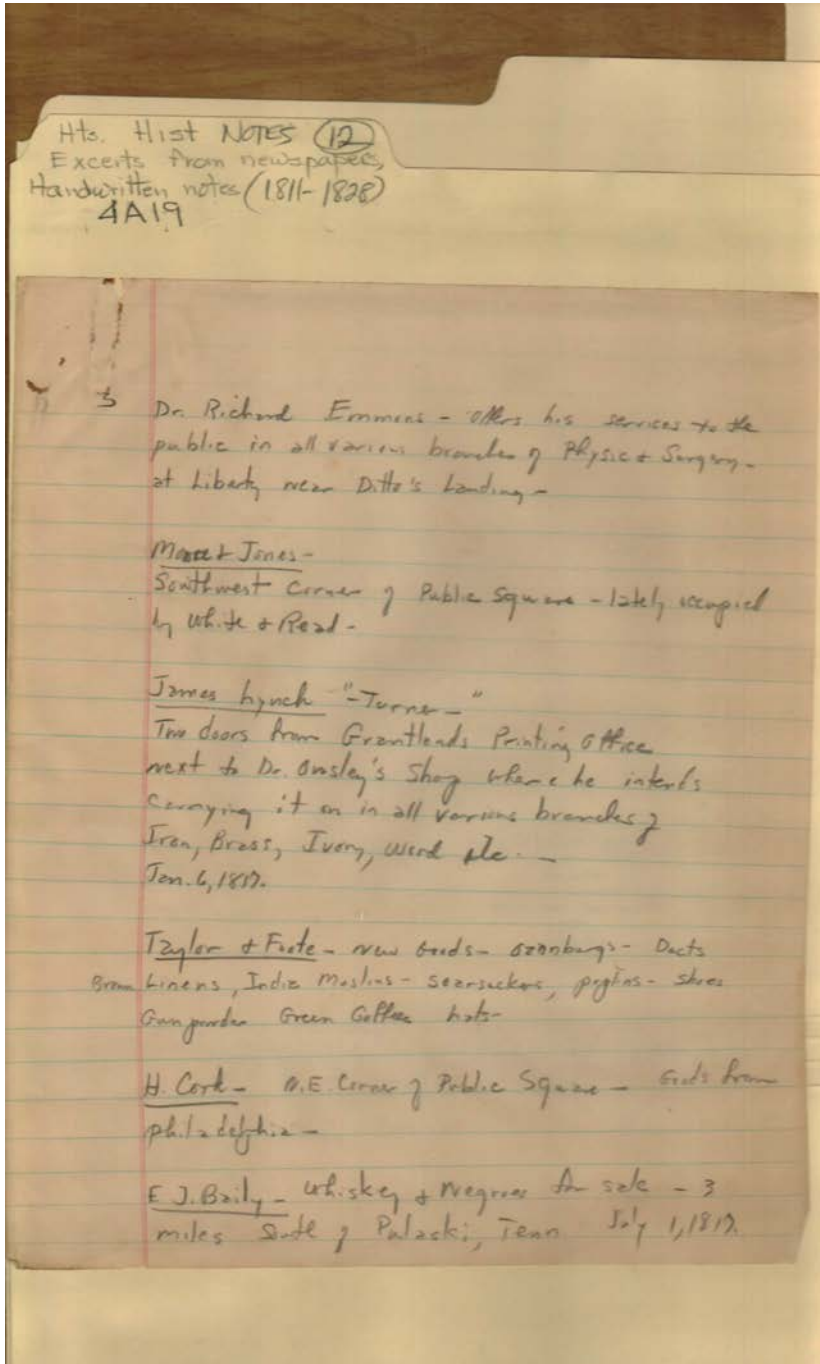 Hts. Hist NOTES 12
Excerts from newspapers,
Handwritten notes (1811-1828)
4A19
Dr. Richard Emmons - offers his services to the
public in all various branches of Physic & Surgery -
at Liberty near Ditto's Landing -
& Jones -
Southwest Corner of Public Square - lately occupied
by White & Read -
James Lynch "-Turner-"
Two doors from Grantlands Printing Office
next to Dr. Shop where he intends
Carrying it on in all various branches of
Iron, Brass, Ivory, wood etc. -
Jan. 6, 1817.
Taylor & Foote - new Goods - Oznonburgs - Ducts
Brown Linens, India Muslins - Searsuckers, - shoes
Gunpowder Green Coffee hats -
H. Cork - N.E. Corner of Public Square - Goods from
philadelphia -
E J. Baily - Whiskey & Negroes for sale - 3
miles South of Pulaski, Tenn July 1, 1817.